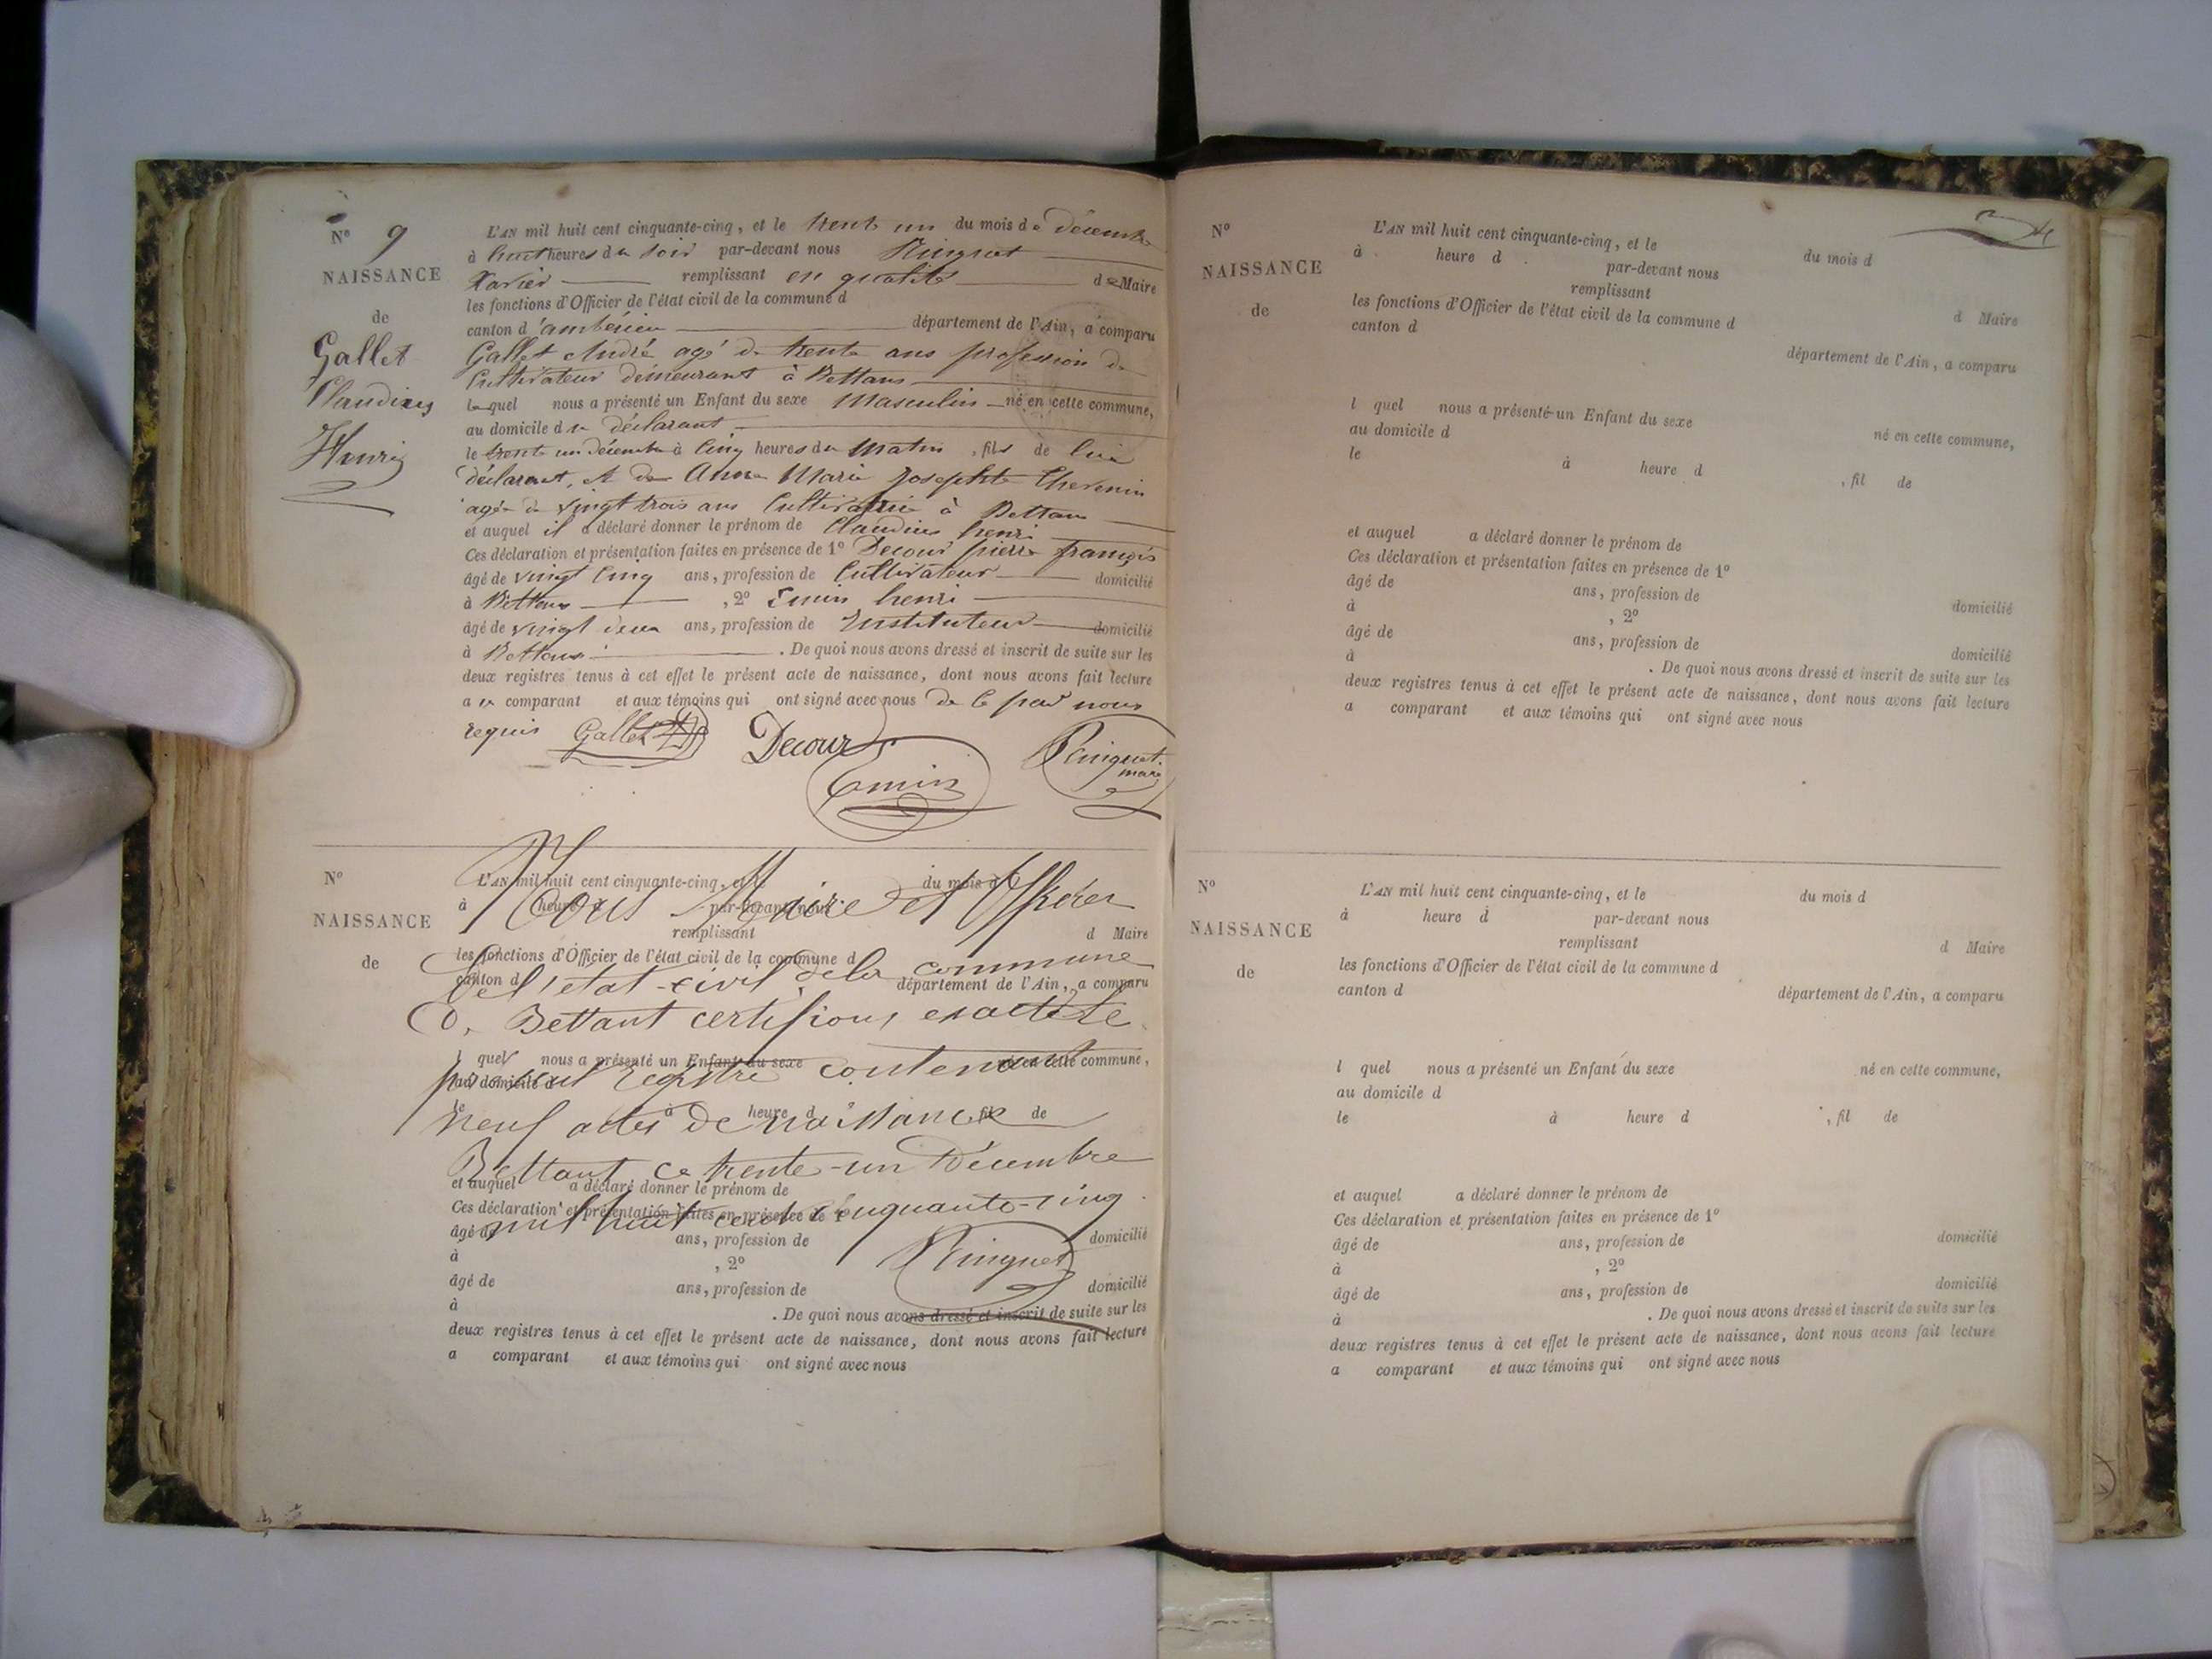 N° 9
NAISSANCE
de
Gallet
Claudius
Henri
L'AN mil huit cent cinquante-cinq, et le trente un du mois de décembre
à huit heures du soir par-devant nous Ringuet
Xavier remplissant en qualité de Maire
les fonctions d'Officier de l'état civil de la commune d
canton d'ambérieu département de l'Ain, a comparu
Gallet André agé de trente ans profession de
Cultivateur demeurant à Bettans
lequel nous a présenté un Enfant du sexe Masculin né en cette commune,
au domicile du déclarant
le trente un décembre à cinq heures du matin, fils de lui
déclarant, et de Anne Marie Josephte Thevenin
agée de vingt trois ans Cultivatrice à Bettans
et auquel il a déclaré donner le prénom de Claudius henri
Ces déclaration et présentation faites en présence de 1° Decour pierre françois
âgé de vingt cinq ans, profession de Cultivateur domicilié
à Bettans, 2° Emin henri
âgé de vingt deux ans, profession de Instituteur domicilié
à Bettans. De quoi nous avons dressé et inscrit de suite sur les
deux registres tenus à cet effet le présent acte de naissance, dont nous avons fait lecture
au comparant et aux témoins qui ont signé avec nous de ce par nous
requis Gallet Decour Ringuet
maire
Emin
N°
NAISSANCE
de
L'AN mil huit cent cinquante-cinq, et le du mois d
à heure d par-devant nous
Nous Maire et Officier
remplissant d Maire
les fonctions d'Officier de l'état civil de la commune d
de l'état-civil de la commune
canton d département de l'Ain, a comparu
De Bettant certifions exact le
l quel nous a présenté un Enfant du sexe né en cette commune,
présent Registre contenant
au domicile d
le à heure d, fil de
neuf actes de naissance
Bettant ce trente-un Décembre
et auquel a déclaré donner le prénom de
Ces déclaration et présentation faites en présence de 1°
mil huit cent cinquante-cinq
âgé de ans, profession de domicilié
à, 2° Ringuet
âgé de ans, profession de domicilié
à. De quoi nous avons dressé et inscrit de suite sur les
deux registres tenus à cet effet le présent acte de naissance, dont nous avons fait lecture
a comparant et aux témoins qui ont signé avec nous
N°
NAISSANCE
de
L'AN mil huit cent cinquante-cinq, et le du mois d
à heure d par-devant nous
remplissant d Maire
les fonctions d'Officier de l'état civil de la commune d
canton d département de l'Ain, a comparu
l quel nous a présenté un Enfant du sexe né en cette commune,
au domicile d
le à heure d, fil de
et auquel a déclaré donner le prénom de
Ces déclaration et présentation faites en présence de 1°
âgé de ans, profession de domicilié
à, 2°
âgé de ans, profession de domicilié
à. De quoi nous avons dressé et inscrit de suite sur les
deux registres tenus à cet effet le présent acte de naissance, dont nous avons fait lecture
a comparant et aux témoins qui ont signé avec nous
N°
NAISSANCE
de
L'AN mil huit cent cinquante-cinq, et le du mois d
à heure d par-devant nous
remplissant d Maire
les fonctions d'Officier de l'état civil de la commune d
canton d département de l'Ain, a comparu
l quel nous a présenté un Enfant du sexe né en cette commune,
au domicile d
le à heure d, fil de
et auquel a déclaré donner le prénom de
Ces déclaration et présentation faites en présence de 1°
âgé de ans, profession de domicilié
à, 2°
âgé de ans, profession de domicilié
à. De quoi nous avons dressé et inscrit de suite sur les
deux registres tenus à cet effet le présent acte de naissance, dont nous avons fait lecture
a comparant et aux témoins qui ont signé avec nous